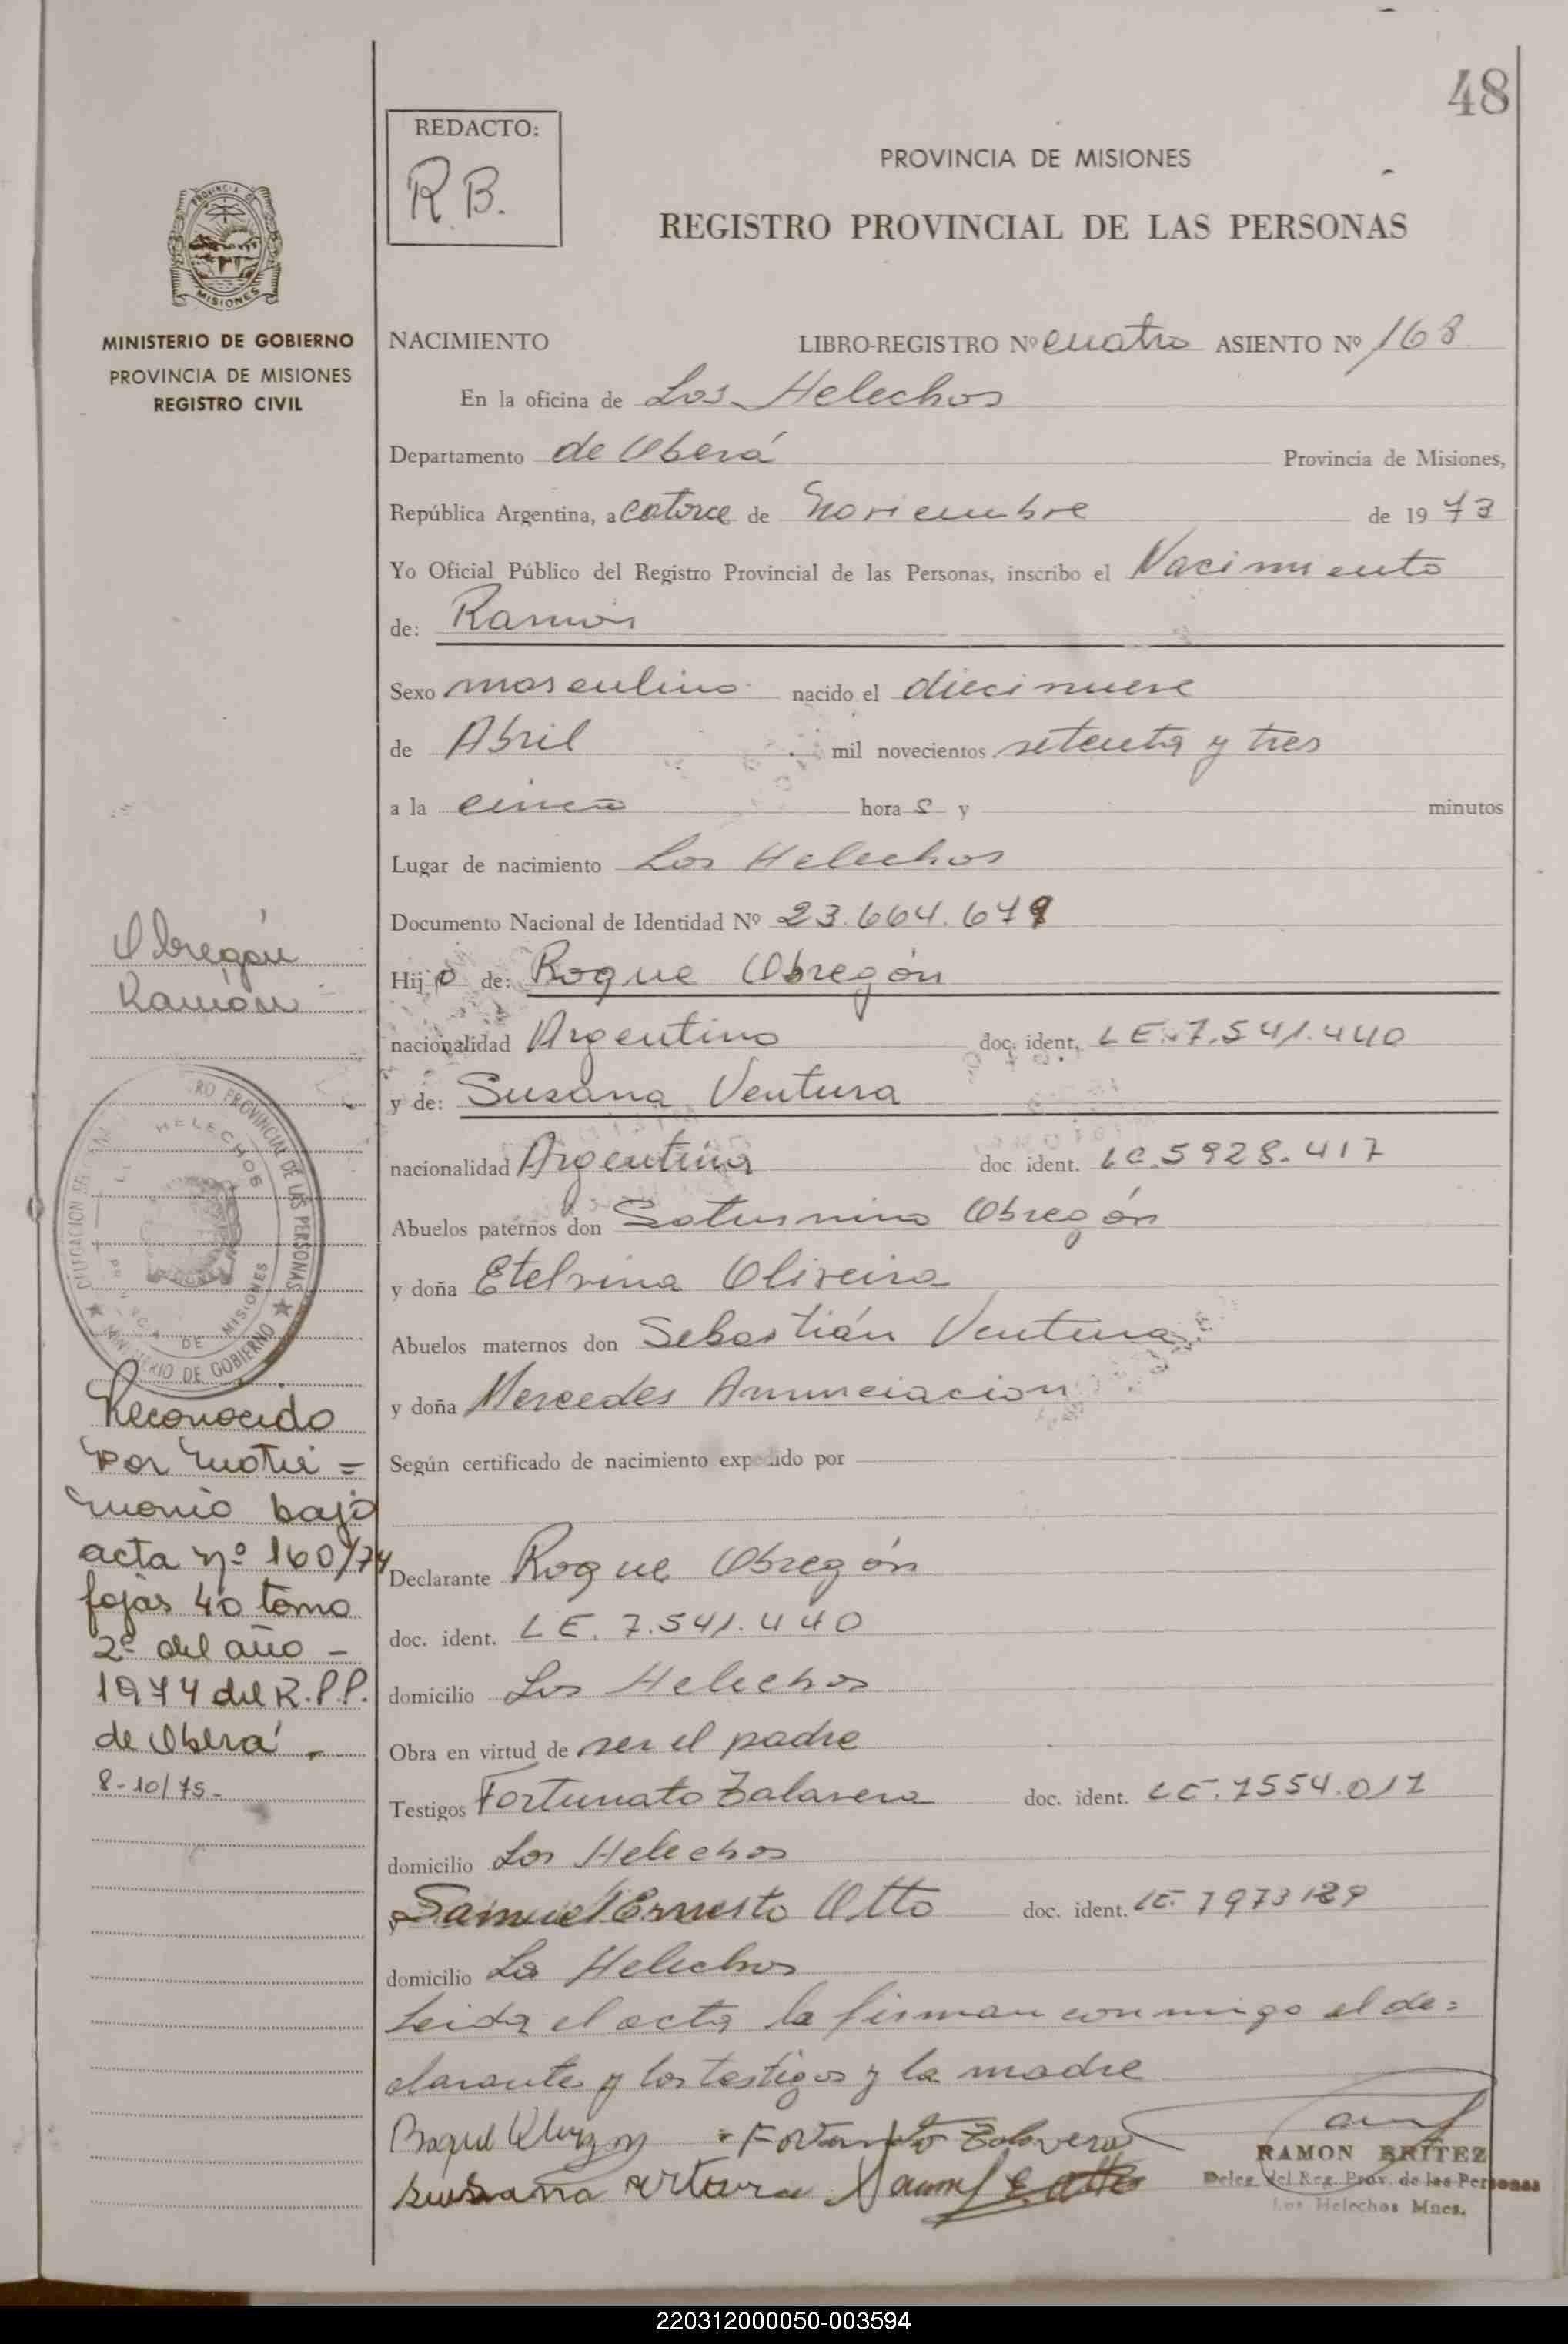 48
REDACTO:
R.B.
PROVINCIA DE MISIONES
REGISTRO PROVINCIAL DE LAS PERSONAS
MISIONES
MINISTERIO DE GOBIERNO
PROVINCIA DE MISIONES
REGISTRO CIVIL
NACIMIENTO LIBRO-REGISTRO Nº cuatro ASIENTO Nº 168
En la oficina de Los Helechos
Departamento de Oberá Provincia de Misiones,
República Argentina, a catorce de Noviembre de 1973
Yo Oficial Público del Registro Provincial de las Personas, inscribo el Nacimiento
de: Ramón
Sexo masculino nacido el diecinueve
de Abril mil novecientos setenta y tres
a la cinco hora s y minutos
Lugar de nacimiento Los Helechos
Documento Nacional de Identidad Nº 23.664.679
Hijo de: Roque Obregón
nacionalidad Argentino doc. ident. LE. 7.541.440
y de: Susana Ventura
nacionalidad Argentina doc ident. LC. 5928.417
Abuelos paternos don Saturnino Obregón
y doña Etelvina Oliveira
Abuelos maternos don Sebastián Ventura
y doña Mercedes Anunciacion
Según certificado de nacimiento expedido por
Declarante Roque Obregón
doc. ident. LE. 7.541.440
domicilio Los Helechos
Obra en virtud de ser el padre
Testigos Fortunato Zalavera doc. ident. LE. 7554.017
domicilio Los Helechos
y Samuel Ernesto Otto doc. ident. LE. 7973129
domicilio Los Helechos
Leida el acta la firman conmigo el de=
clarante y los testigos y la madre
Fortunato Zalavera
RAMON BRITEZ
Susana
Deleg. del Reg. Prov. de las Personas
Los Helechos Mnes.
Obregón
Ramón
RO PROVINCIAL DE LAS PERSONAS
HELECHOS
DE MISIONES
MINISTERIO DE GOBIERNO
Reconocido
por matri=
monio bajo
acta nº 160/74
fojas 40 tomo
2º del año -
1974 del R.P.P.
de Oberá.
8-10/75-
220312000050-003594